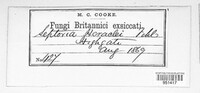 M. C. COOKE.
Fungi Britannici exsiccati.
Septoria Heraclei
Highgate
Aug 1869
No. 457